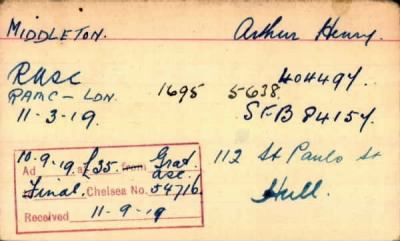 MIDDLETON. Arthur Henry.
RASC 404497.
RAMC - LDN. 1695 5638
11-3-19. SFB 84157
10.9.19 £35. Grat.
Ad a from asc.
Final. Chelsea No. 54716.
Received 11-9-19
112 St Paulo St
Hull.